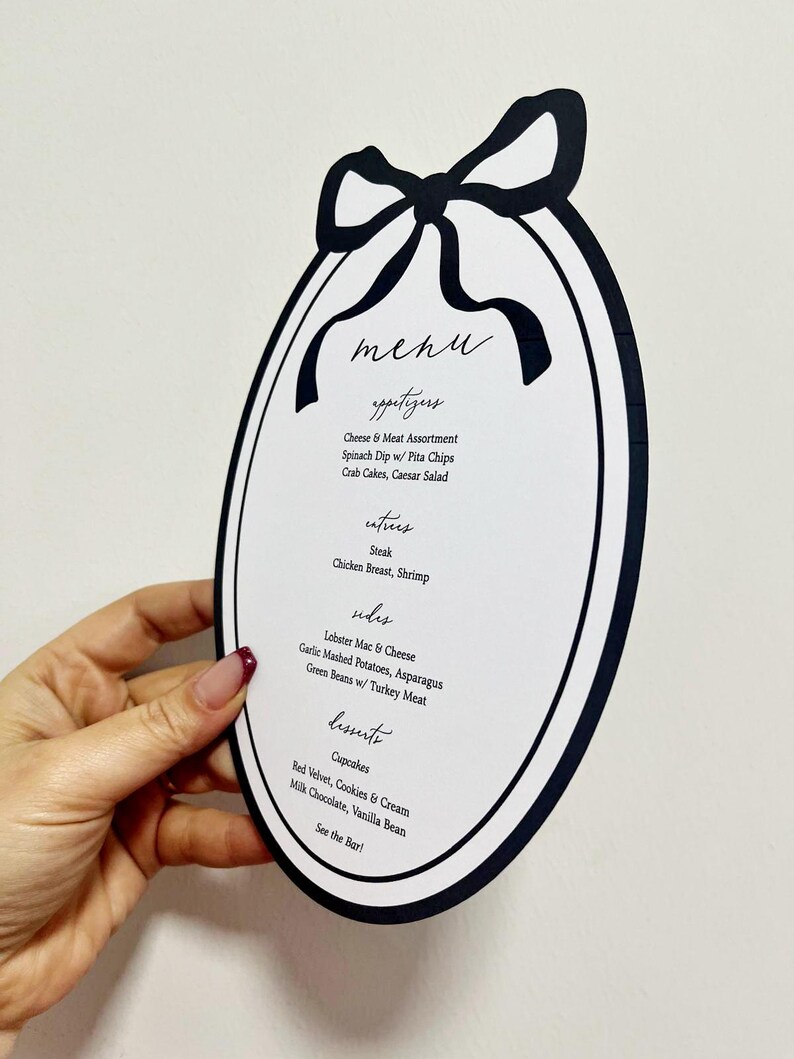 menu
appetizers
Cheese & Meat Assortment
Spinach Dip w/ Pita Chips
Crab Cakes, Caesar Salad
entrees
Steak
Chicken Breast, Shrimp
sides
Lobster Mac & Cheese
Garlic Mashed Potatoes, Asparagus
Green Beans w/ Turkey Meat
desserts
Cupcakes
Red Velvet, Cookies & Cream
Milk Chocolate, Vanilla Bean
See the Bar!